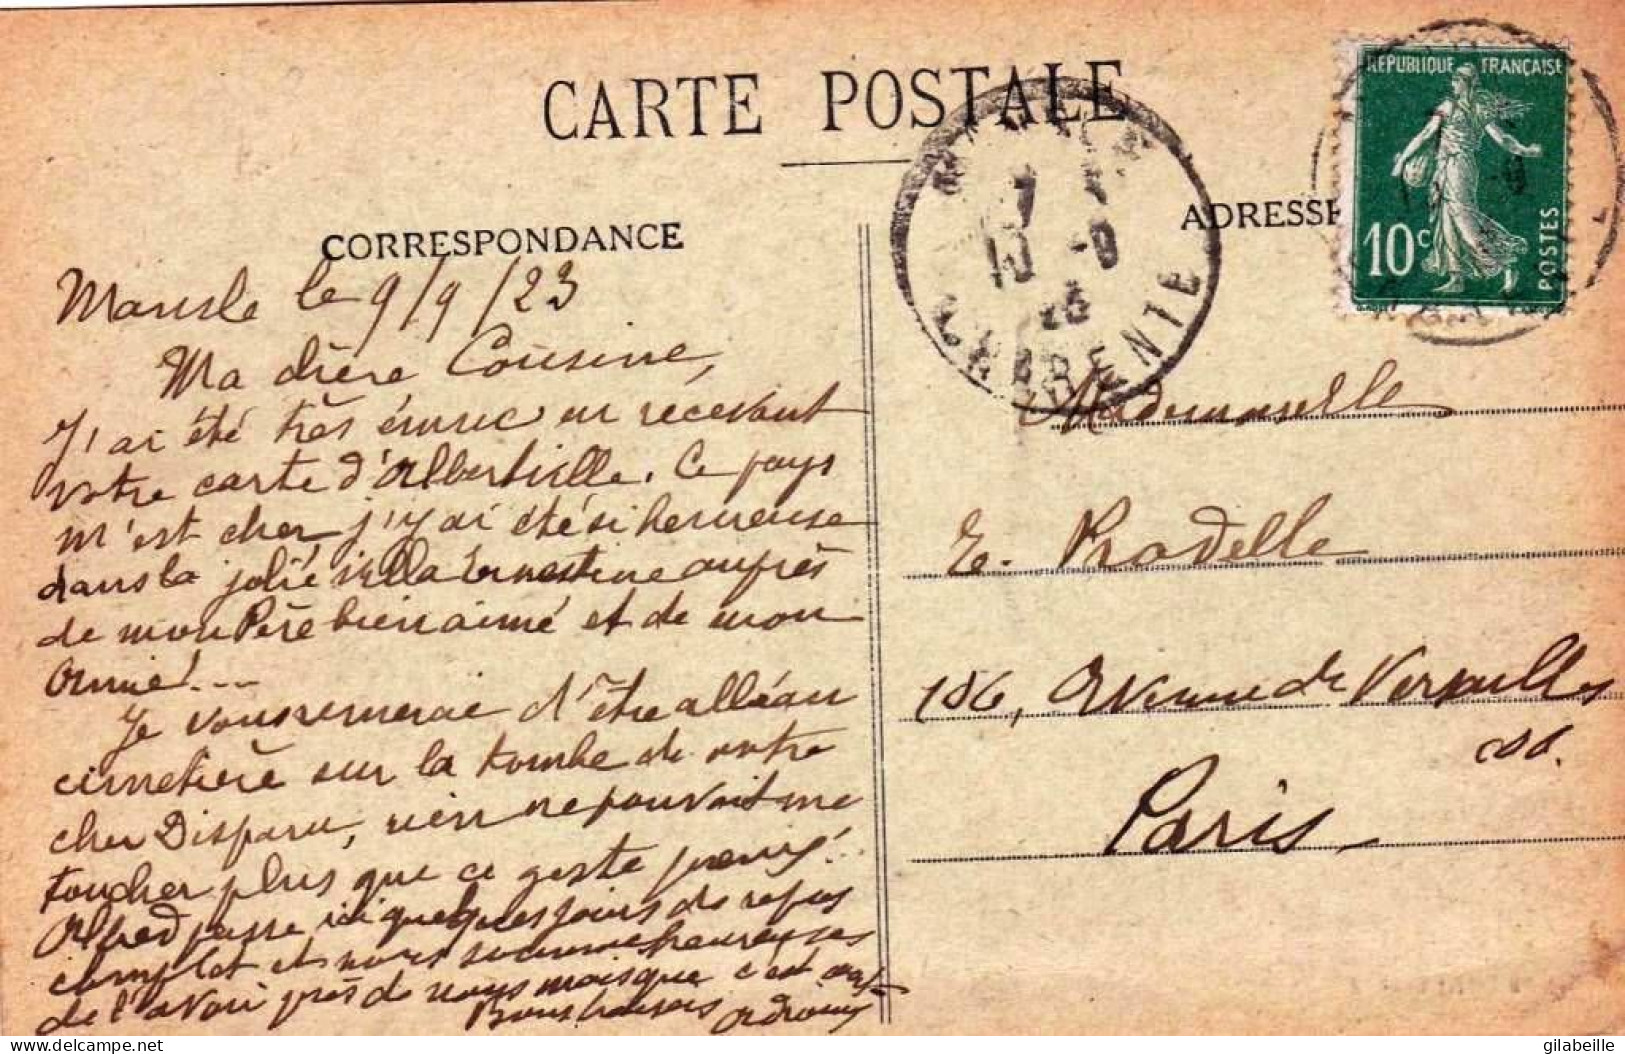 CARTE POSTALE
CORRESPONDANCE
ADRESSE
RÉPUBLIQUE FRANÇAISE
10c
POSTES
CHARENTE
10 -9
23
Mansle le 9/9/23
Ma chère Cousine,
J'ai été très émue en récevant
votre carte d'Albertville. Ce pays
m'est cher j'y ai été si heureuse
dans la jolie villa Ernestine auprès
de mon Père bien aimé et de mon
aimé!...
Je vous remercie d'être allée au
cimetière sur la tombe de votre
cher Disparu, rien ne pouvait me
toucher plus que ce geste
Alfred passe ici quelques jours de repos
complet et nous sommes heureuses
de l'avoir près de nous mais que c'est
Bons baisers
Mademoiselle
E. Pradelle
186, Avenue de Versailles
Paris
delcampe.net
gilabeille